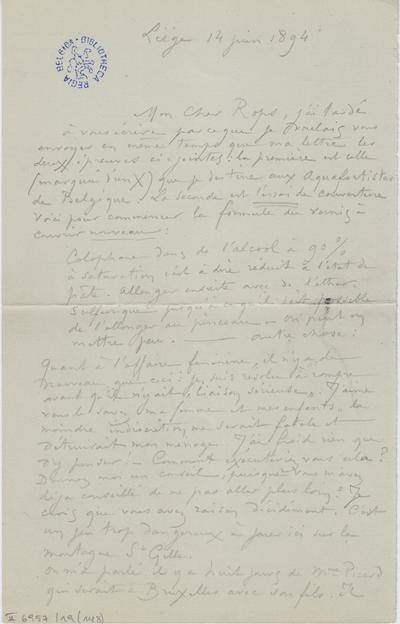 Liége 14 juin 1894
BELGICA · BIBLIOTHECA REGIA
Mon Cher Rops, j'ai tardé
à vous écrire parce que je voulais vous
envoyer en même temps que ma lettre les
deux épreuves ci-jointes: la première est celle
(marqué d'un X) que je destine aux Aquafortistes
de Belgique. La seconde est l'essai de couverture
Voici pour commencer la formule du vernis à
couvrir nouveau:
Colophane dans de l'alcool à 90%
à saturation c'est à dire réduit à l'état de
pâte. Allonger ensuite avec de l'éther
Sulfurique jusqu'à ce qu'il soit possible
de l'allonger au pinceau — on peut en
mettre peu. — autre chose:
Quant à l'affaire féminine, il n'y a de
nouveau que ceci: je suis résolu à rompre
avant qu'il n'y ait "liaison sérieuse". J'aime
vous le savez ma femme et mes enfants. la
moindre indiscrétion me serait fatale et
détruirait mon ménage. J'ai froid rien que
d'y penser! — Comment exécuteriez vous cela?
Donnez moi un conseil, puisque vous m'avez
déja conseillé de ne pas aller plus loin? Je
crois que vous avez raison décidement. C'est
un jeu trop dangereux à jouer ici sur la
montagne St Gille.
On m'a parlé il y a huit jours de Mme Picard
qui serait à Bruxelles avec son fils. Il
II 6957/19(148)